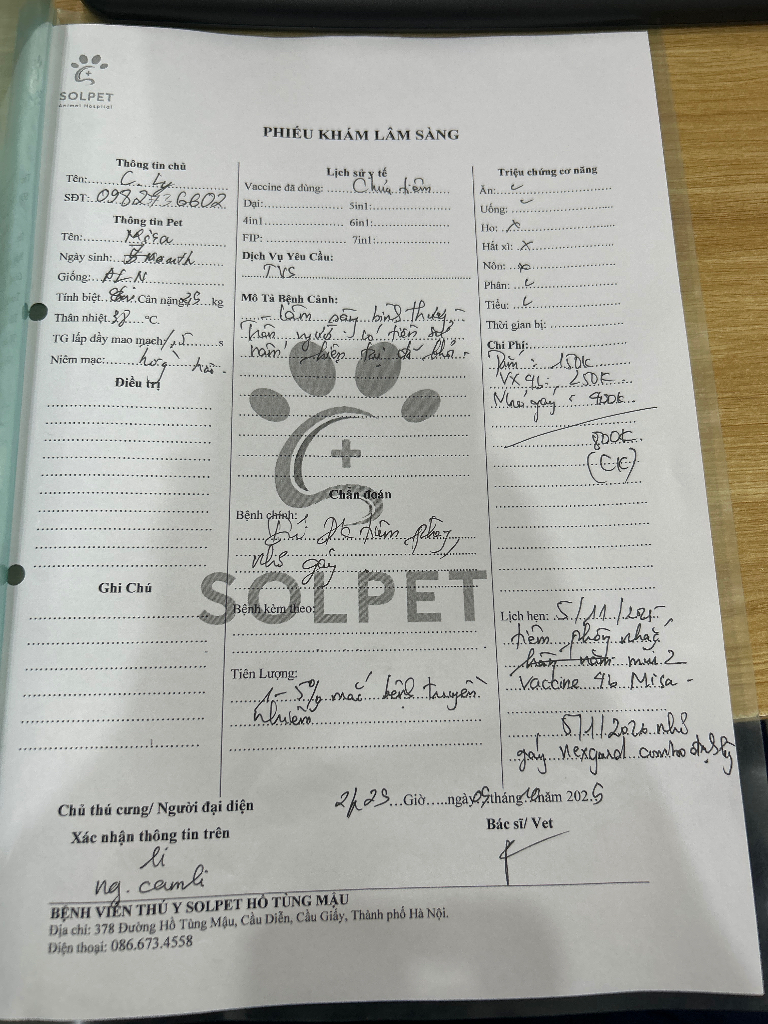 SOLPET
Animal Hospital
PHIẾU KHÁM LÂM SÀNG
Thông tin chủ
Tên: C. Ly
SĐT: 0982736602
Thông tin Pet
Tên: Misa
Ngày sinh: month
Giống: ALN
Tính biệt Cân nặng 3,5 kg
Thân nhiệt 38 °C.
TG lấp đầy mao mạch 1,5 s
Niêm mạc: hồng hào.
Điều trị
Ghi Chú
Lịch sử y tế
Vaccine đã dùng: Chưa tiêm
Dại: 5in1:
4in1: 6in1:
FIP: 7in1:
Dịch Vụ Yêu Cầu:
TVS
Mô Tả Bệnh Cảnh:
- Lâm sàng bình thường -
có tiền sử
nấm, hiện tại đã khỏi.
Chẩn đoán
Bệnh chính:
đk tiêm phòng,
nhỏ gáy
SOLPET
Bệnh kèm theo:
Tiên Lượng:
1 - 5% mắc bệnh truyền
nhiễm
Triệu chứng cơ năng
Ăn: ✓
Uống: ✓
Ho: x
Hắt xì: x
Nôn: x
Phân: ✓
Tiểu: ✓
Thời gian bị:
Chi Phí:
Tắm: 150k
VX 4b: 250k
Nhỏ gáy: 400k
800k
(CK)
Lịch hẹn: 5/11/2025,
tiêm phòng nhắc
mũi 2
vaccine 4b Misa -
5/1/2026 nhỏ
gáy nexgard combo
Chủ thú cưng/ Người đại diện
Xác nhận thông tin trên
li
ng. camli
2h23 Giờ.....ngày 05 tháng 10 năm 2025
Bác sĩ/ Vet
BỆNH VIỆN THÚ Y SOLPET HỒ TÙNG MẬU
Địa chỉ: 378 Đường Hồ Tùng Mậu, Cầu Diễn, Cầu Giấy, Thành phố Hà Nội.
Điện thoại: 086.673.4558